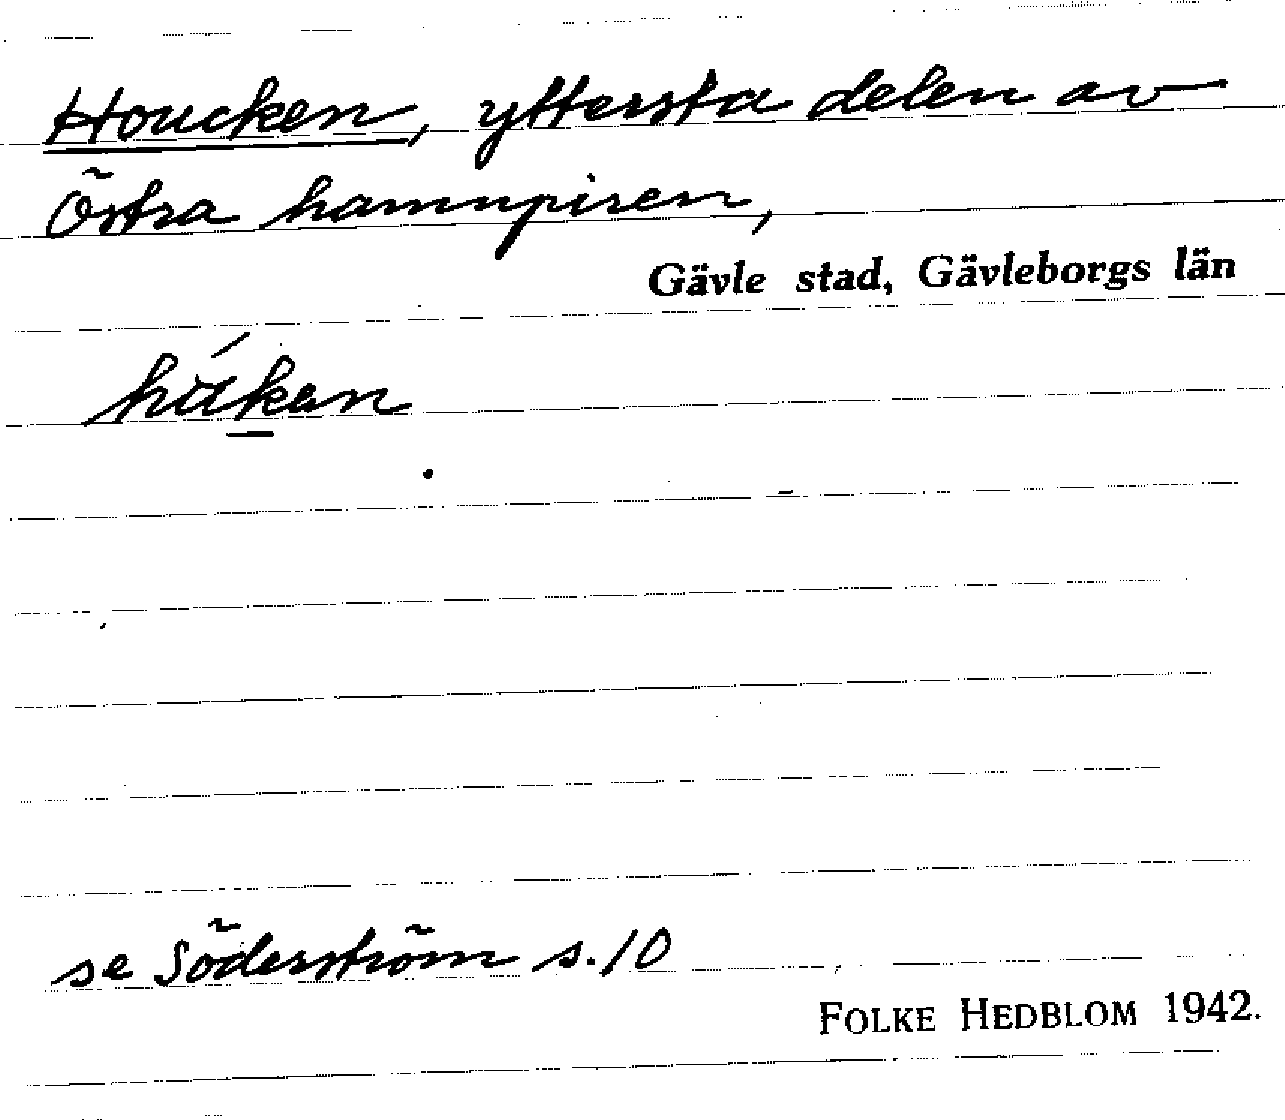 Houcken, yttersta delen av
Östra hamnpiren,
Gävle stad, Gävleborgs län
hákan
se Söderström s. 10
FOLKE HEDBLOM 1942.